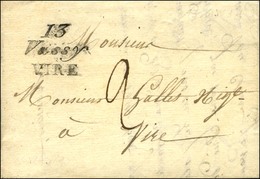 13
Vassy
VIRE
Monsieur
2
Monsieur Halles Nég.
à Vire